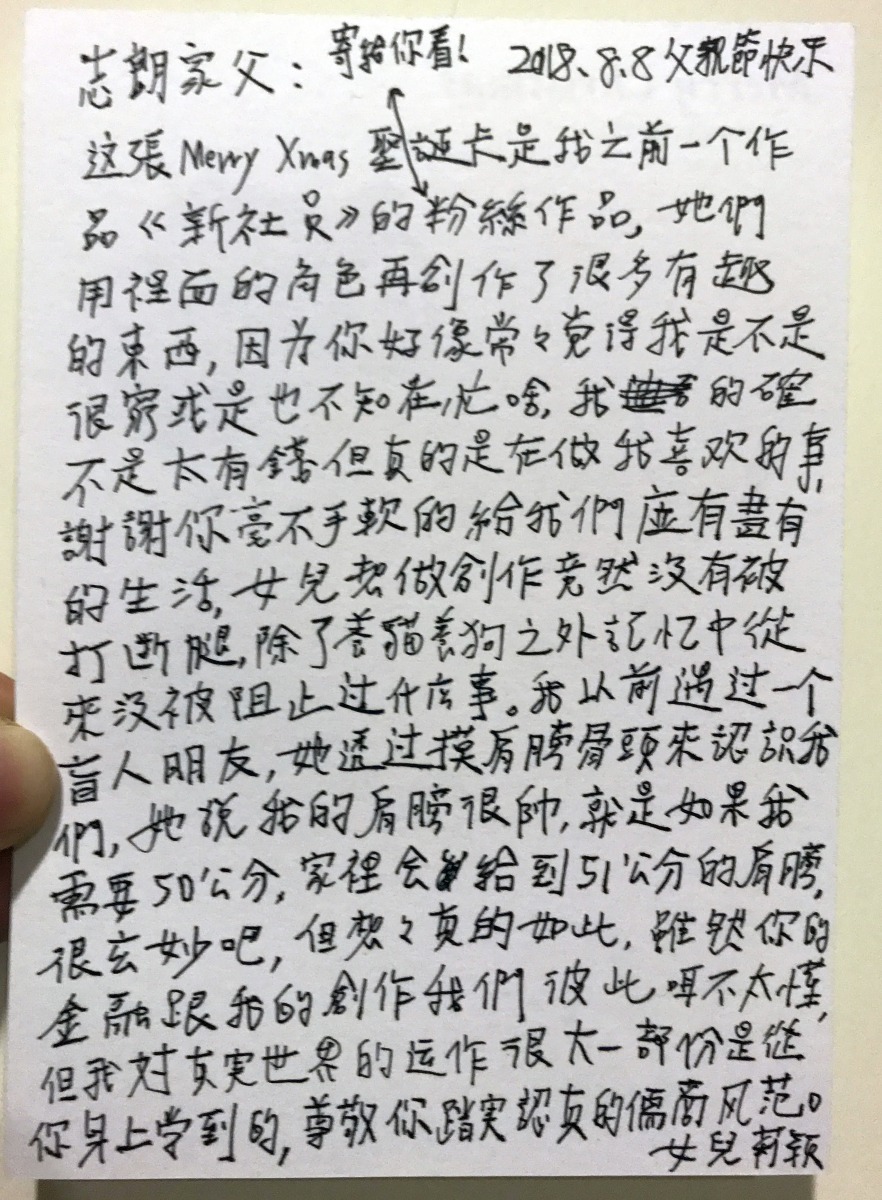 志朗家父：寄給你看！ 2018.8.8 父親節快乐
这張 Merry Xmas 聖誕卡是我之前一个作
品《新社员》的粉絲作品，她們
用裡面的角色再創作了很多有趣
的東西，因为你好像常々覚得我是不是
很窮或是也不知在忙啥，我 的確
不是太有錢但真的是在做我喜欢的事，
謝謝你毫不手軟的給我們应有盡有
的生活，女兒想做創作竟然沒有被
打断腿，除了養貓養狗之外記忆中從
來沒被阻止过什麼事。我以前遇过一个
盲人朋友，她透过摸肩膀骨頭來認識我
們，她說我的肩膀很帥，就是如果我
需要50公分，家裡会給到51公分的肩膀，
很玄妙吧，但想々真的如此，雖然你的
金融跟我的創作我們彼此 不太懂，
但我对真实世界的运作很大一部份是從
你身上学到的，尊敬你踏实認真的儒商风范。
女兒莉颖